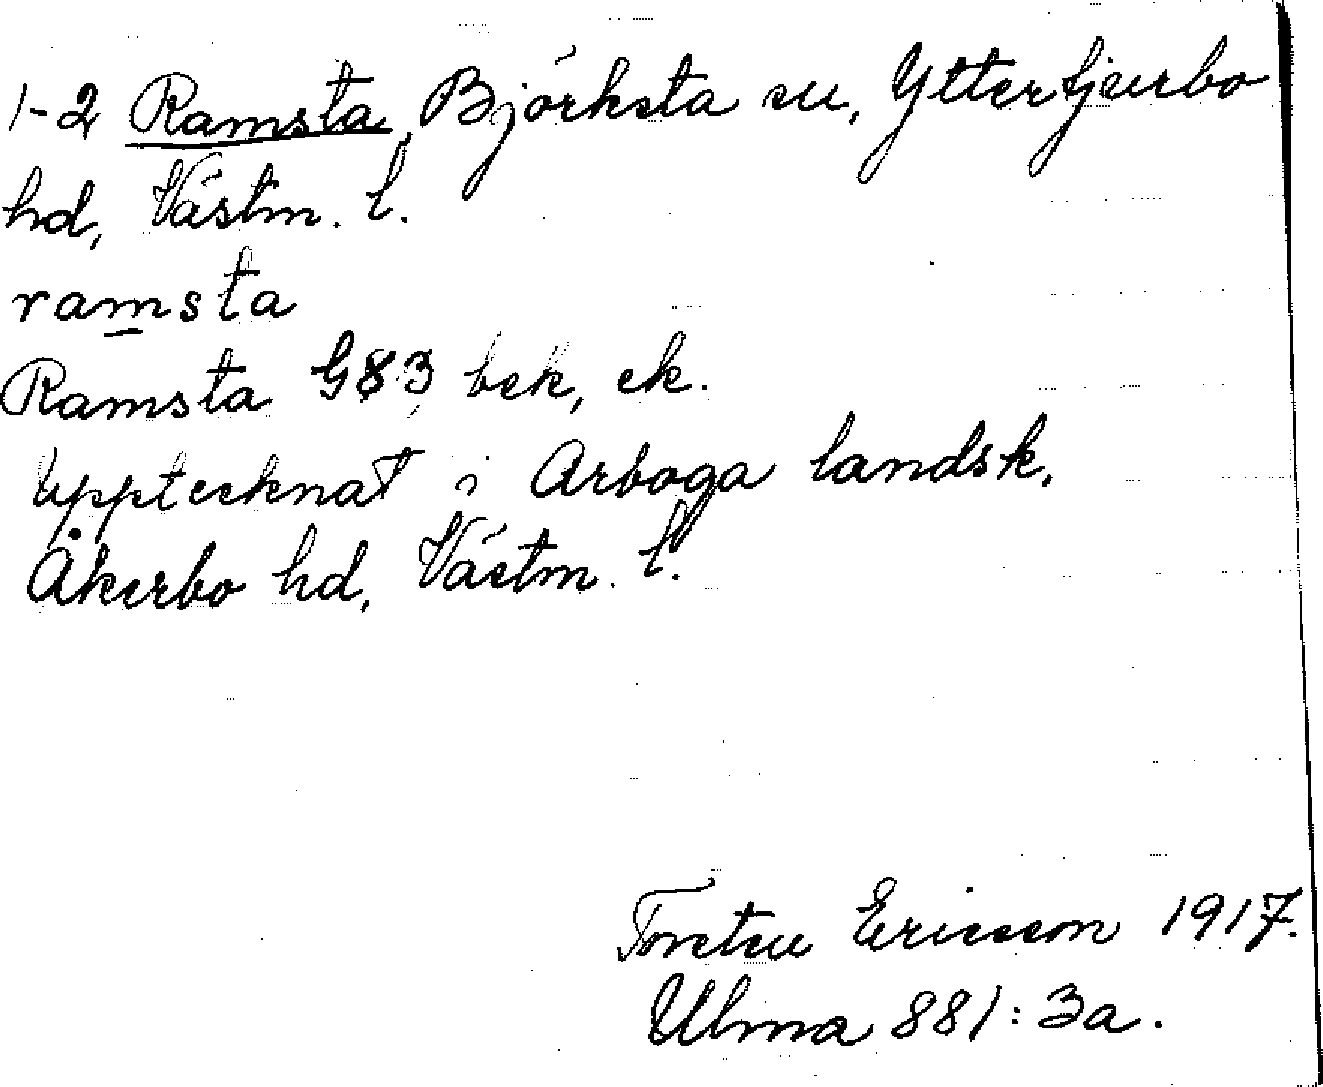 1-2 Ramsta, Björksta sn, Yttertjurbo
hd, Västm. l.
ramsta
Ramsta G83, bek, ek.
Upptecknat i Arboga landsk.
Åkerbo hd, Västm. l.
Torsten Ericsson 1917.
Ulma 881:3a.